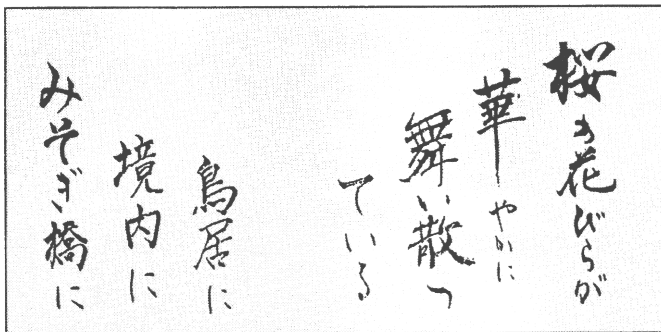 桜の花びらが
華やかに
舞い散っ
ている
鳥居に
境内に
みそぎ橋に